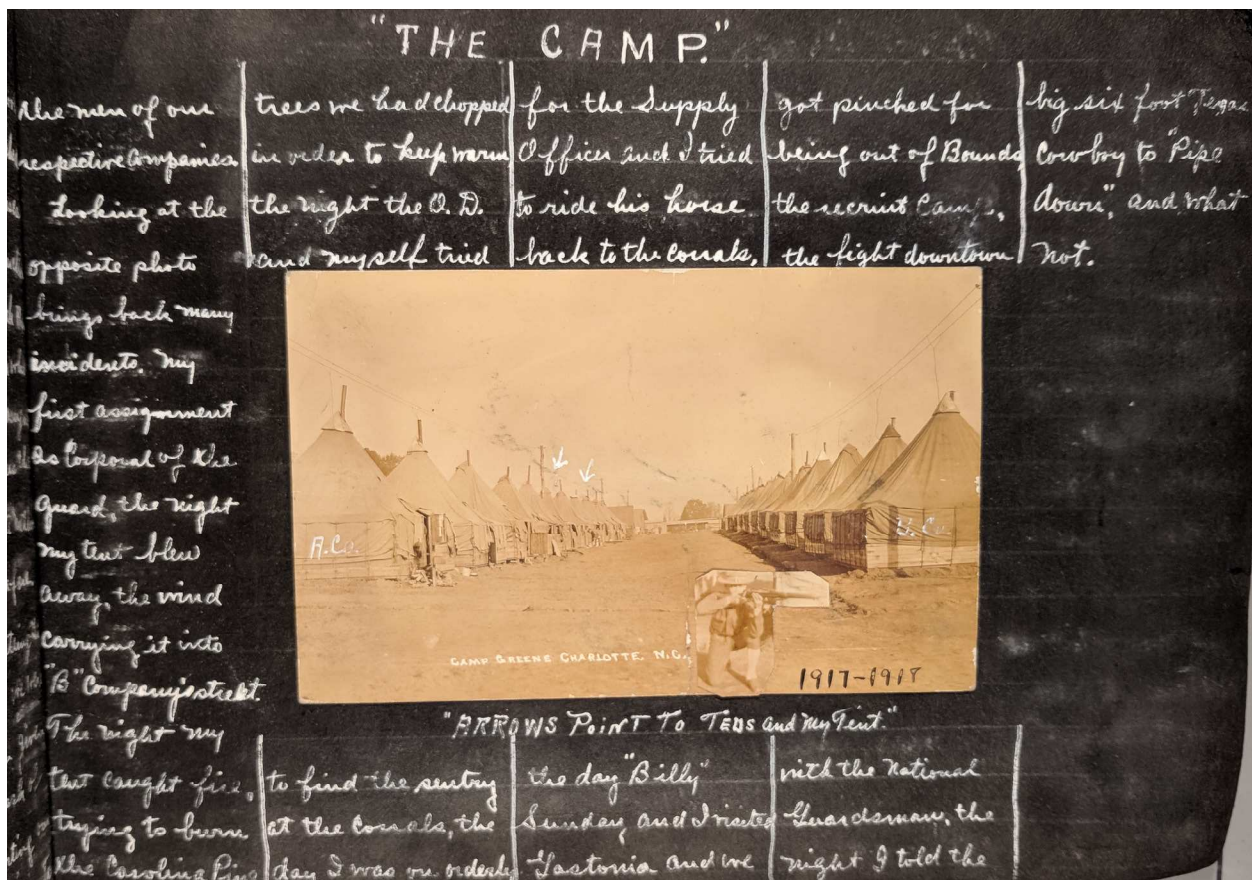 "THE CAMP."
"the men of our
respective Companies
Looking at the
opposite photo
brings back many
incidents. My
first assignment
as Corporal of the
guard, the night
my tent blew
away, the wind
carrying it into
"B" Company's street.
The night my
tent caught fire,
trying to burn
the Carolina Pine
trees we had chopped
in order to keep warm
the night the O.D.
and myself tried
to find the sentry
at the corrals, the
day I was on orderly
for the Supply
Officer and I tried
to ride his horse
back to the corrals,
the day "Billy"
Sunday, and I visited
Gastonia and we
got pinched for
being out of Bounds
the recruit Camp,
the fight downtown
with the National
Guardsman, the
night I told the
big six foot Texas
cowboy to "Pipe
down", and what
not.
A.Co.
Co.
CAMP GREENE CHARLOTTE. N.C.
1917-1918
"ARROWS POINT TO TEDS and My Tent."